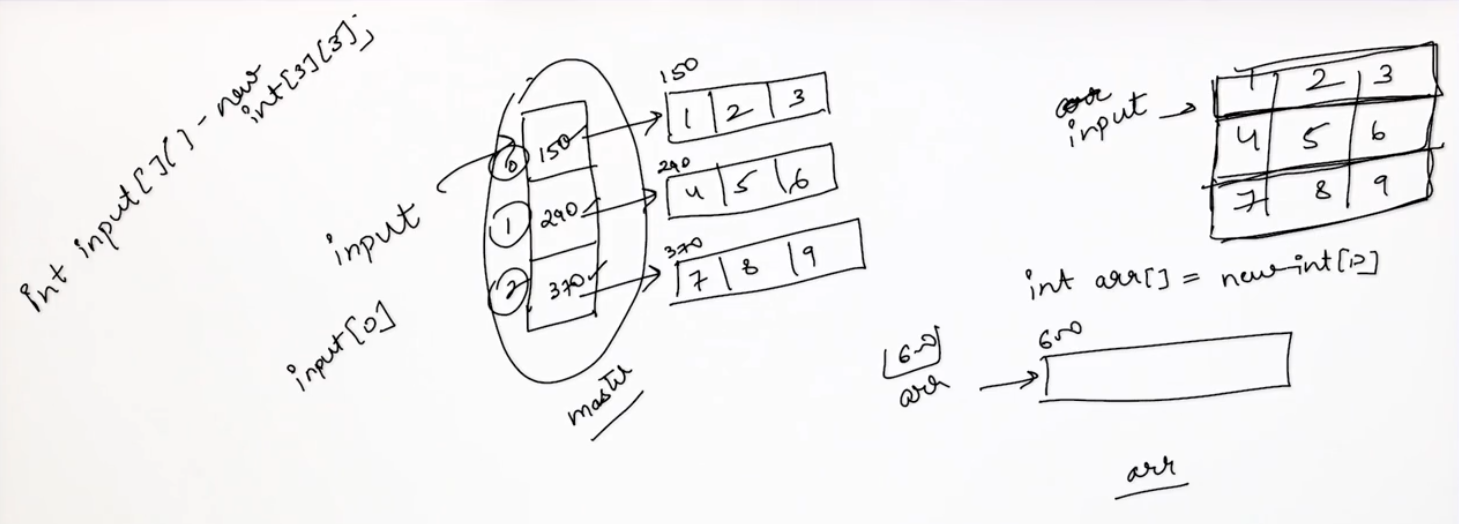 int input[][] - new
int[3][3];
input
input[0]
0
1
2
150
290
370
master
150
1 2 3
290
4 5 6
370
7 8 9
input
1 2 3
4 5 6
7 8 9
int arr[] = new int[]
600
arr
600
arr